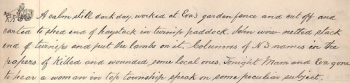 A calm still dark day, worked at Era's garden fence and out off and
carted to shed end of haystack in turnip paddock. John wire netted stack
end of turnips and put the lambs on it. Columns of N.Z. names in the
papers of killed and wounded, some local ones. Tonight Mam and Era gone
to hear a woman in top township speak on some peculiar subject.